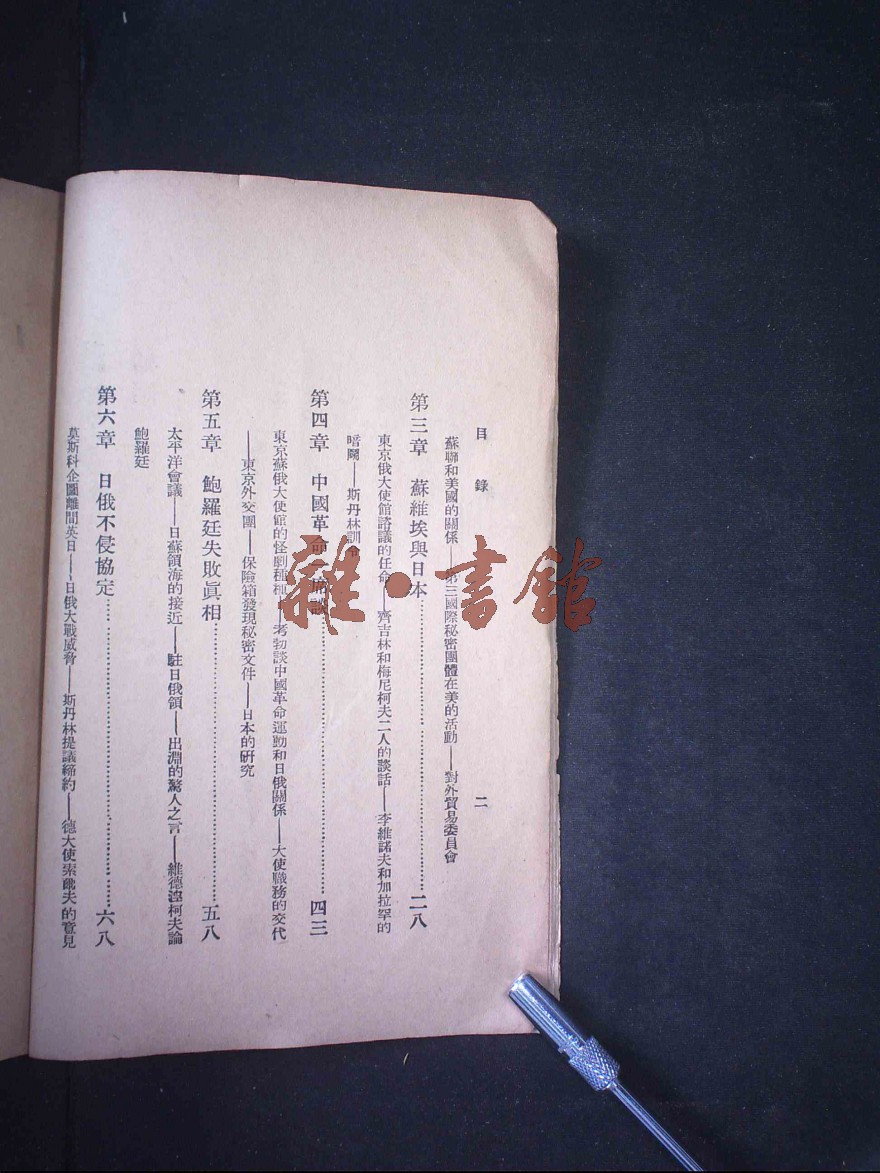 目錄 二
蘇聯和美國的關係——第三國際秘密團體在美的活動——對外貿易委員會
第三章 蘇維埃與日本 二八
東京俄大使館諮議的任命——齊吉林和梅尼柯夫二人的談話——李維諾夫和加拉罕的
暗鬭——斯丹林訓令
第四章 中國革命 四三
東京蘇俄大使館的怪劇種種——考勿談中國革命運動和日俄關係——大使職務的交代
——東京外交團——保險箱發現秘密文件——日本的研究
第五章 鮑羅廷失敗眞相 五八
太平洋會議——日蘇領海的接近——駐日俄領——出淵的驚人之言——維德湼柯夫論
鮑羅廷
第六章 日俄不侵協定 六八
莫斯科企圖離間英日——日俄大戰威脅——斯丹林提議締約——德大使索爾夫的意見
雜·書館